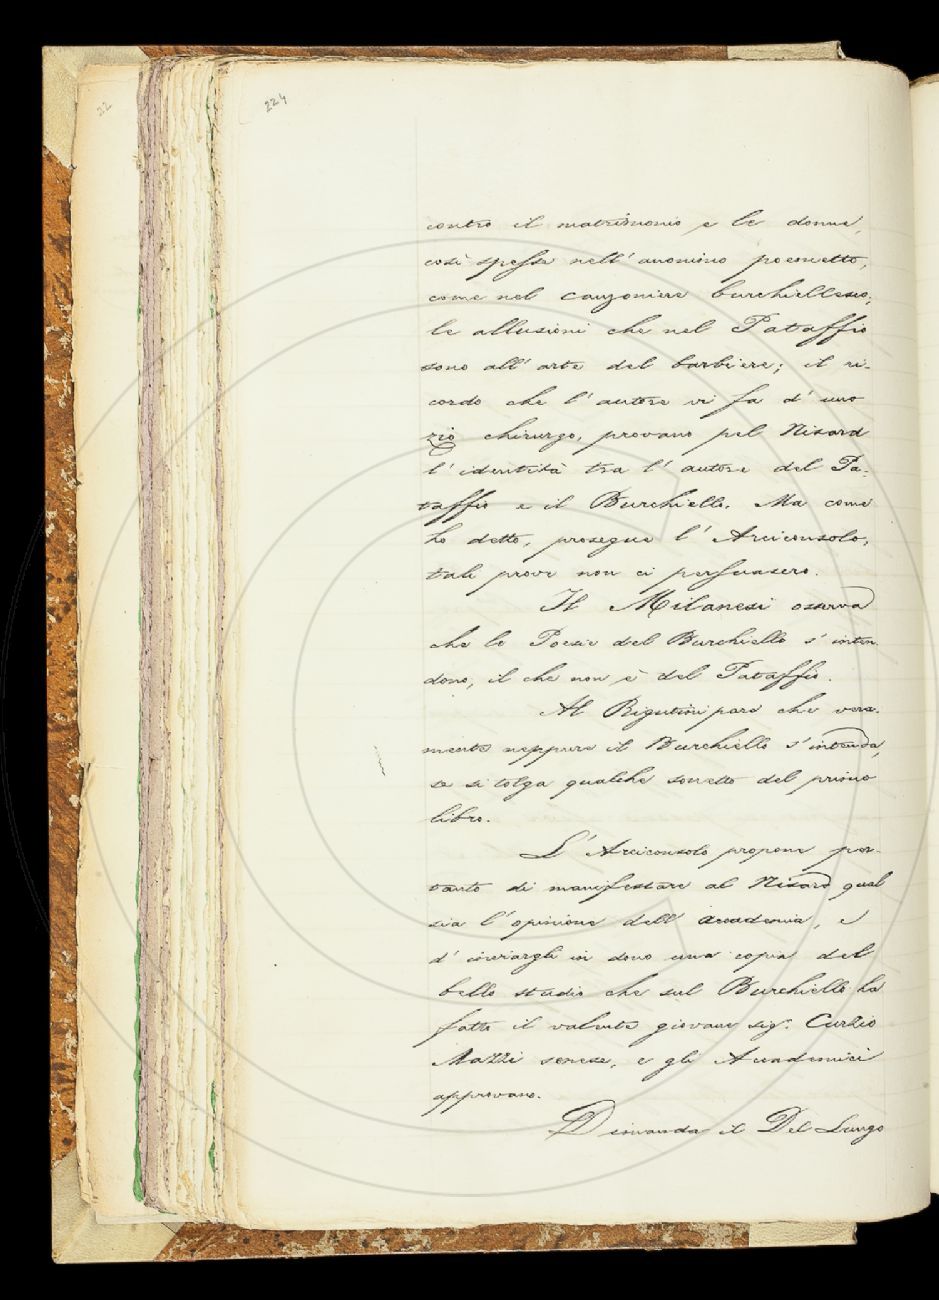 22
224
contro il matrimonio e le donne,
così spesse nell'anonimo poemetto,
come nel canzoniere burchiellesco;
le allusioni che nel Pataffio
sono all'arte del barbiere; il ri-
cordo che l'autore vi fa d'uno
zio chirurgo, provano pel Nisard
l'identità tra l'autore del Pa-
taffio e il Burchiello. Ma come
ho detto, prosegue l'Arciconsolo,
tali prove non ci persuasero.
Il Milanesi osserva
che le Poesie del Burchiello s'inten-
dono, il che non è del Pataffio.
Al Rigutini pare che vera-
mente neppure il Burchiello s'intenda,
se si tolga qualche sonetto del primo
libro.
L'Arciconsolo propone per-
tanto di manifestare al Nisard qual
sia l'opinione dell'accademia, e
d'inviargli in dono una copia del
bello studio che sul Burchiello ha
fatto il valente giovane sig. Curzio
Mazzi senese, e gli Accademici
approvano.
Dimanda il Del Lungo